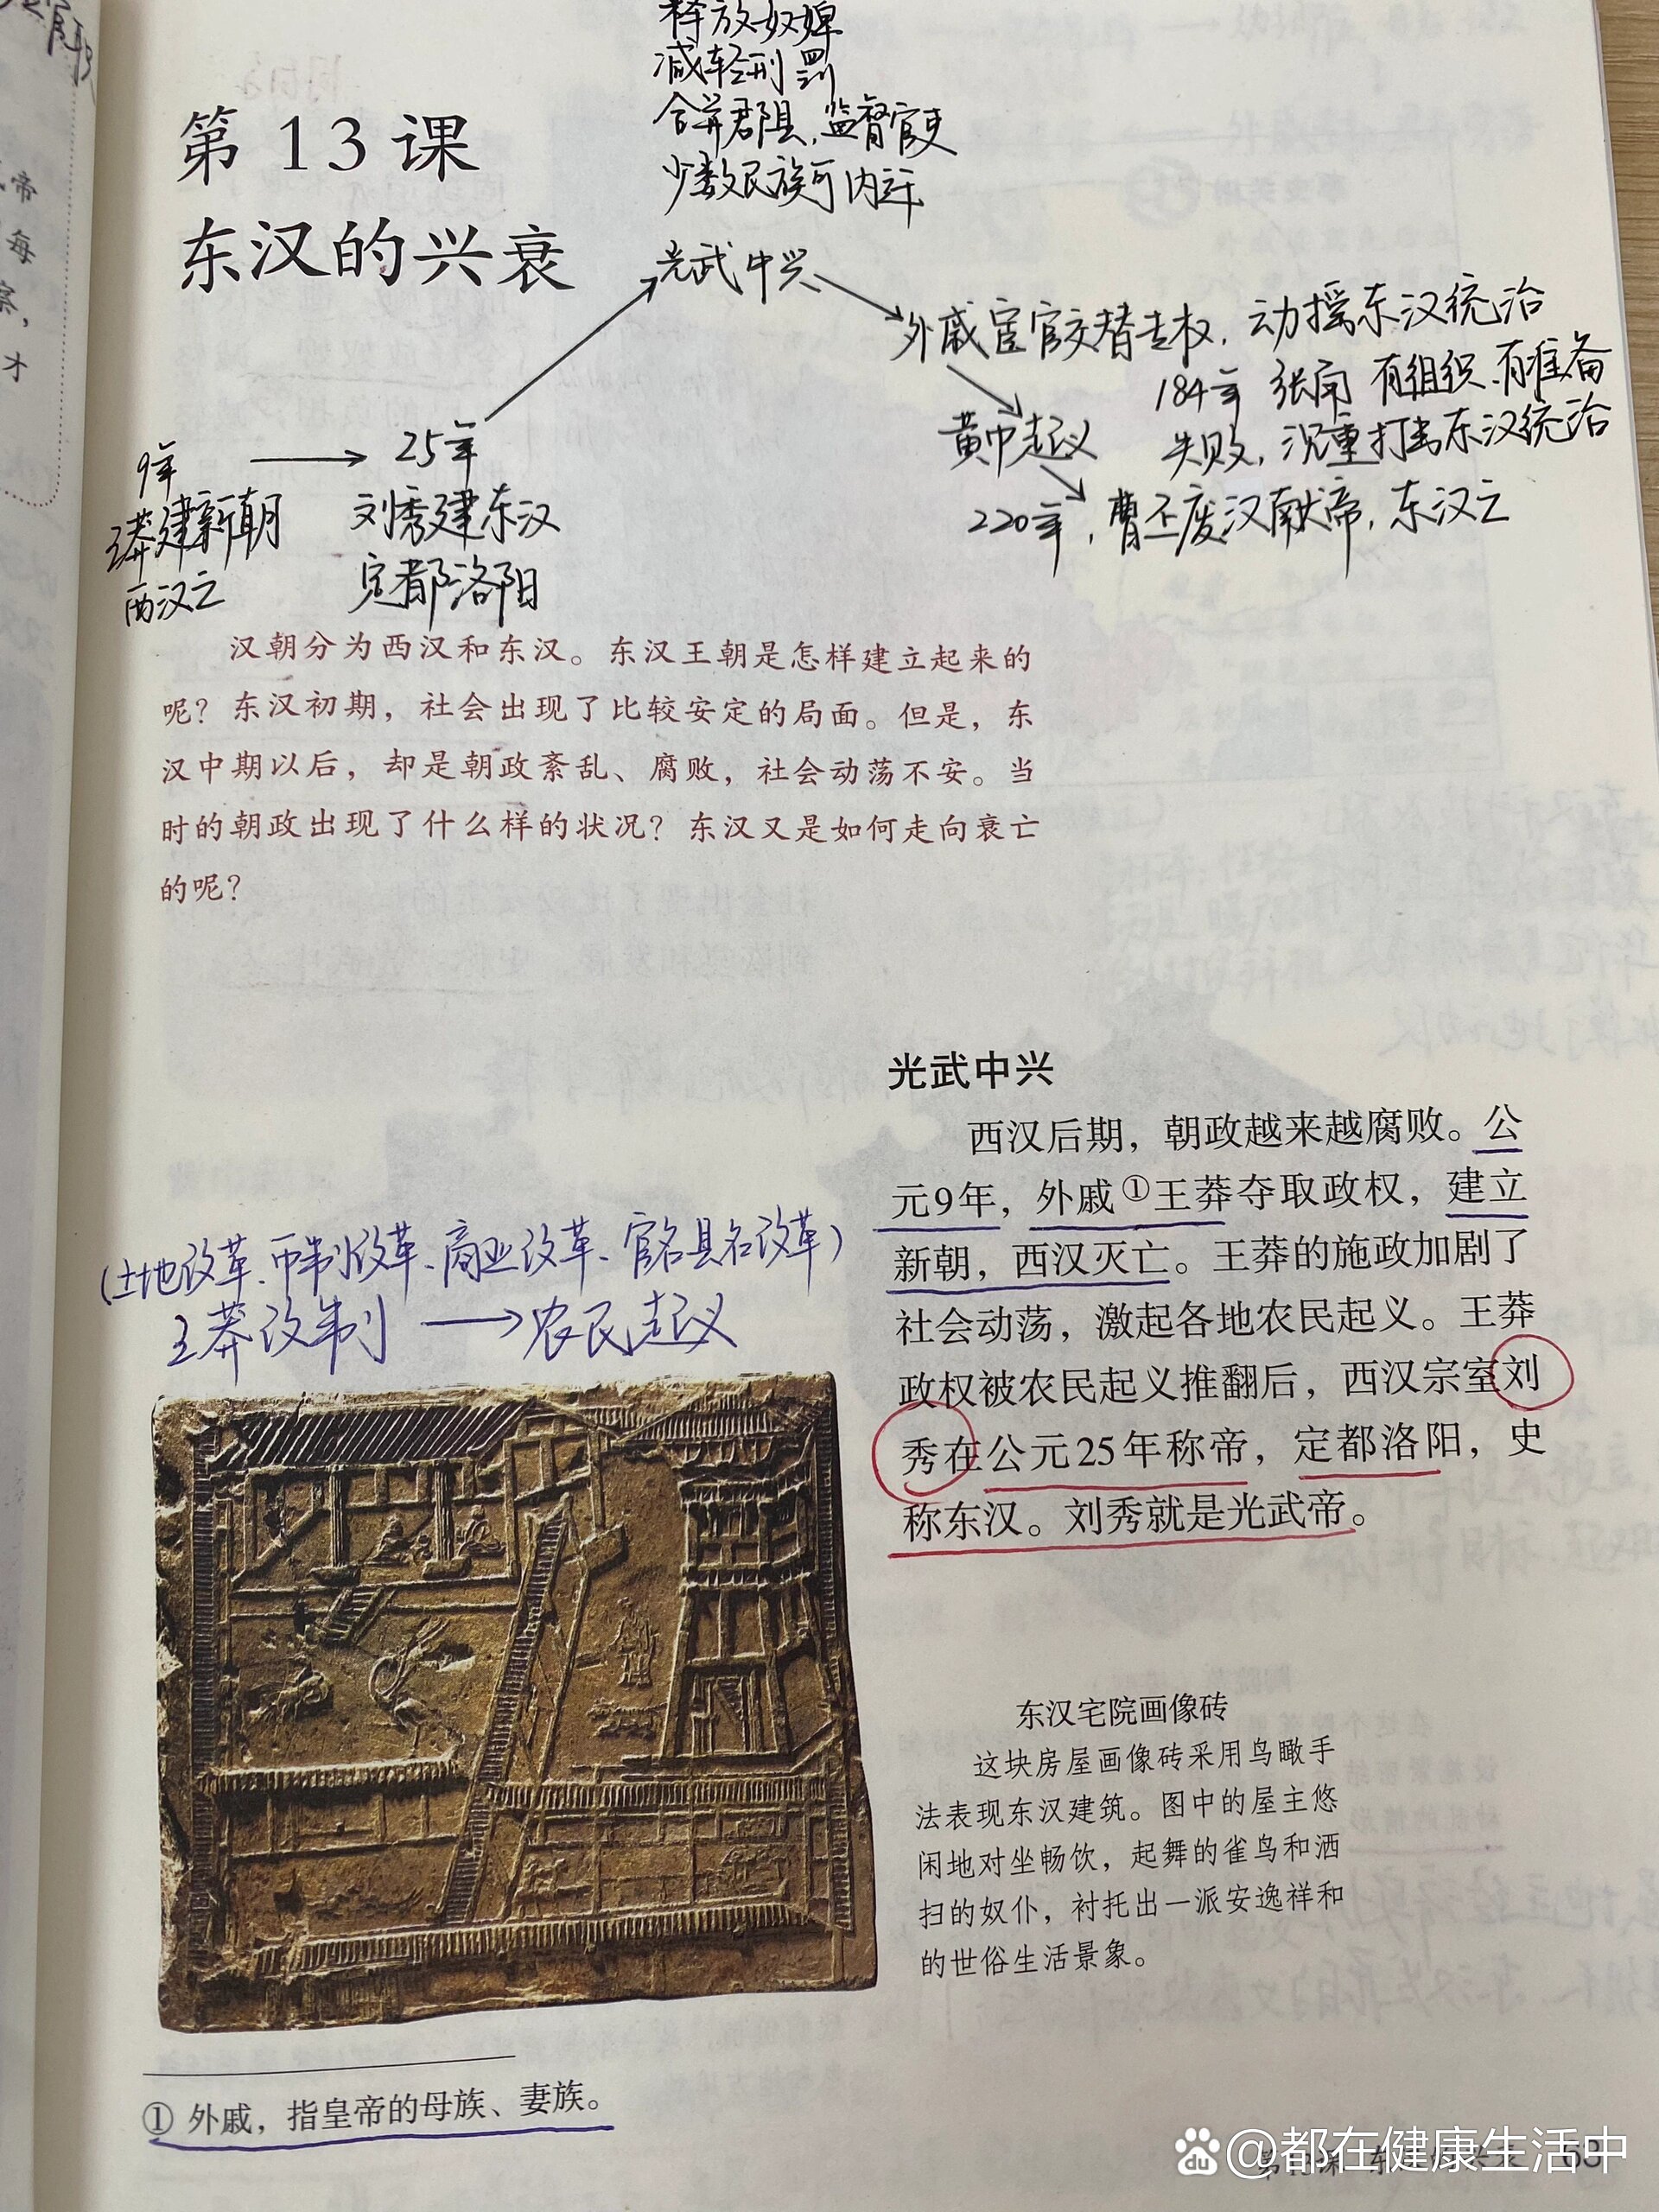 释放奴婢
减轻刑罚
合并郡县，监督官吏
少数民族可内迁
第13课
东汉的兴衰
光武中兴
外戚宦官交替专权，动摇东汉统治
184年 张角 有组织、有准备
黄巾起义 失败，沉重打击东汉统治
220年，曹丕废汉献帝，东汉亡
9年
王莽建新朝
西汉亡
25年
刘秀建东汉
定都洛阳
汉朝分为西汉和东汉。东汉王朝是怎样建立起来的
呢？东汉初期，社会出现了比较安定的局面。但是，东
汉中期以后，却是朝政紊乱、腐败，社会动荡不安。当
时的朝政出现了什么样的状况？东汉又是如何走向衰亡
的呢？
光武中兴
西汉后期，朝政越来越腐败。公
元9年，外戚①王莽夺取政权，建立
新朝，西汉灭亡。王莽的施政加剧了
社会动荡，激起各地农民起义。王莽
政权被农民起义推翻后，西汉宗室刘
秀在公元25年称帝，定都洛阳，史
称东汉。刘秀就是光武帝。
（土地改革、币制改革、商业改革、官名县名改革）
王莽改制 → 农民起义
东汉宅院画像砖
这块房屋画像砖采用鸟瞰手
法表现东汉建筑。图中的屋主悠
闲地对坐畅饮，起舞的雀鸟和洒
扫的奴仆，衬托出一派安逸祥和
的世俗生活景象。
① 外戚，指皇帝的母族、妻族。
第13课 东汉的兴衰 63
@都在健康生活中